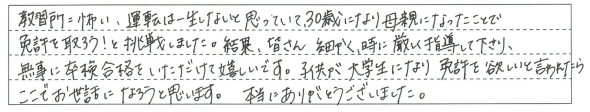 教習所＝怖い、運転は一生しないと思っていて、30歳になり母親になったことで
免許を取ろう！と挑戦しました。結果、皆さん 細かく、時に厳しく指導して下さり、
無事に卒検合格をいただけて嬉しいです。子供が大学生になり 免許を欲しいと言われたら
ここでお世話になろうと思います。 本当にありがとうございました。